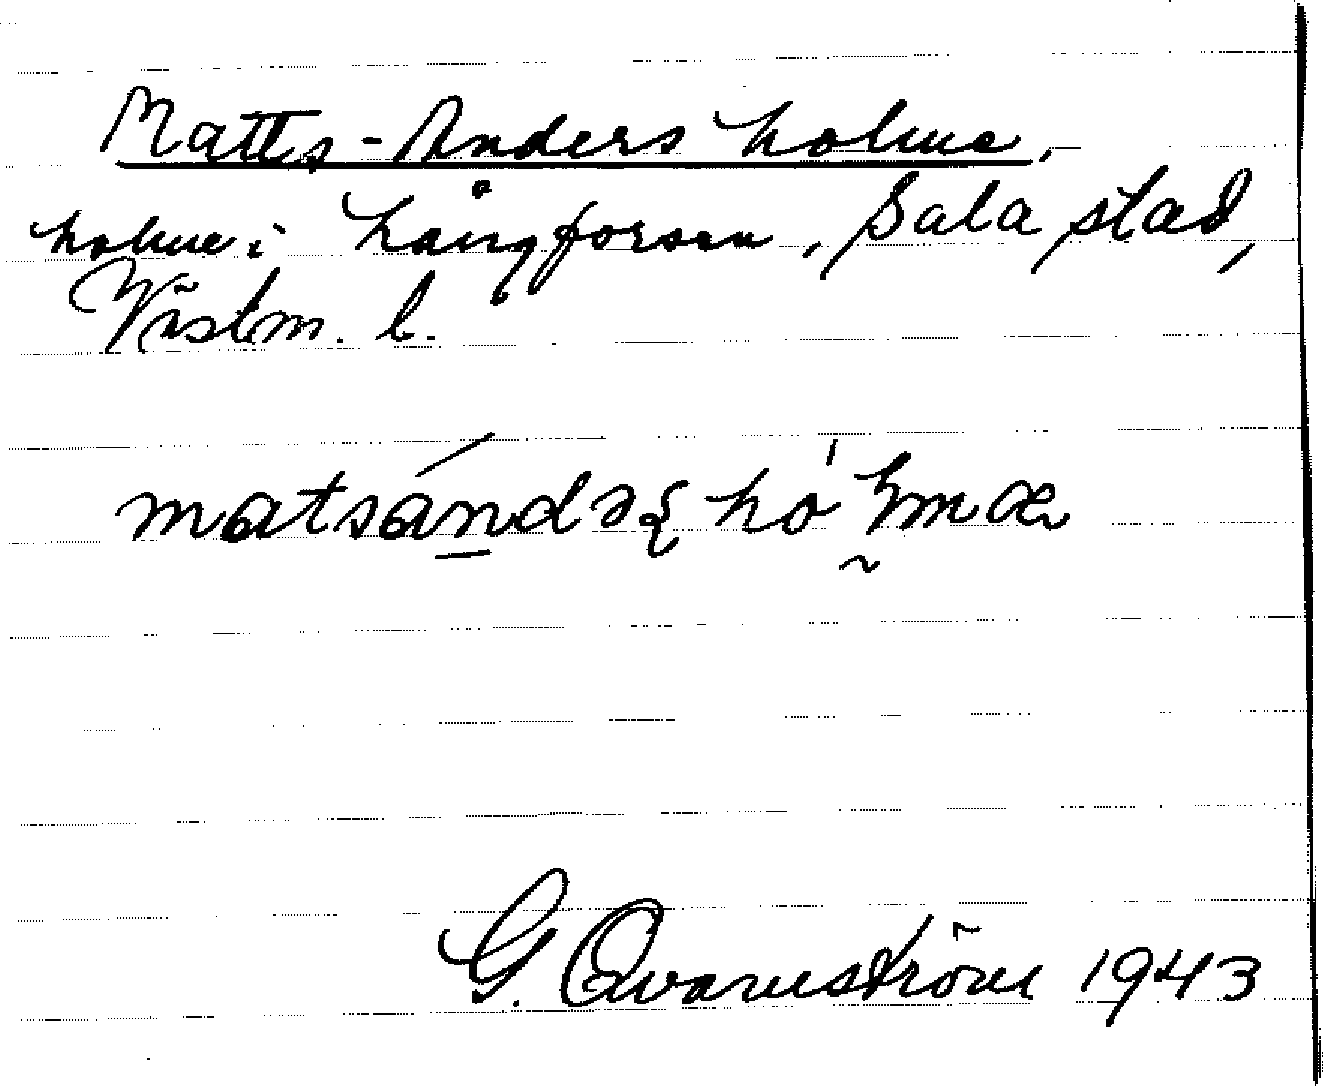 Matts-Anders holme,
holme i Långforsen, Sala stad,
Västm. l.
G. Qvarnström 1943